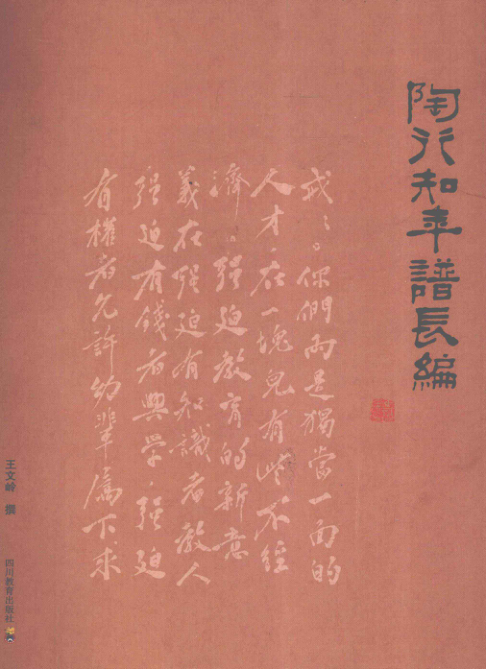 陶行知年譜長編
式：。你們兩是獨當一面的
人才．在一塊兒有些不經
濟．强迫教育的新意
義在强迫有知識者教人
强迫有錢者興學．强迫
有權者允許幼輩為下求
王文岭 撰
四川教育出版社